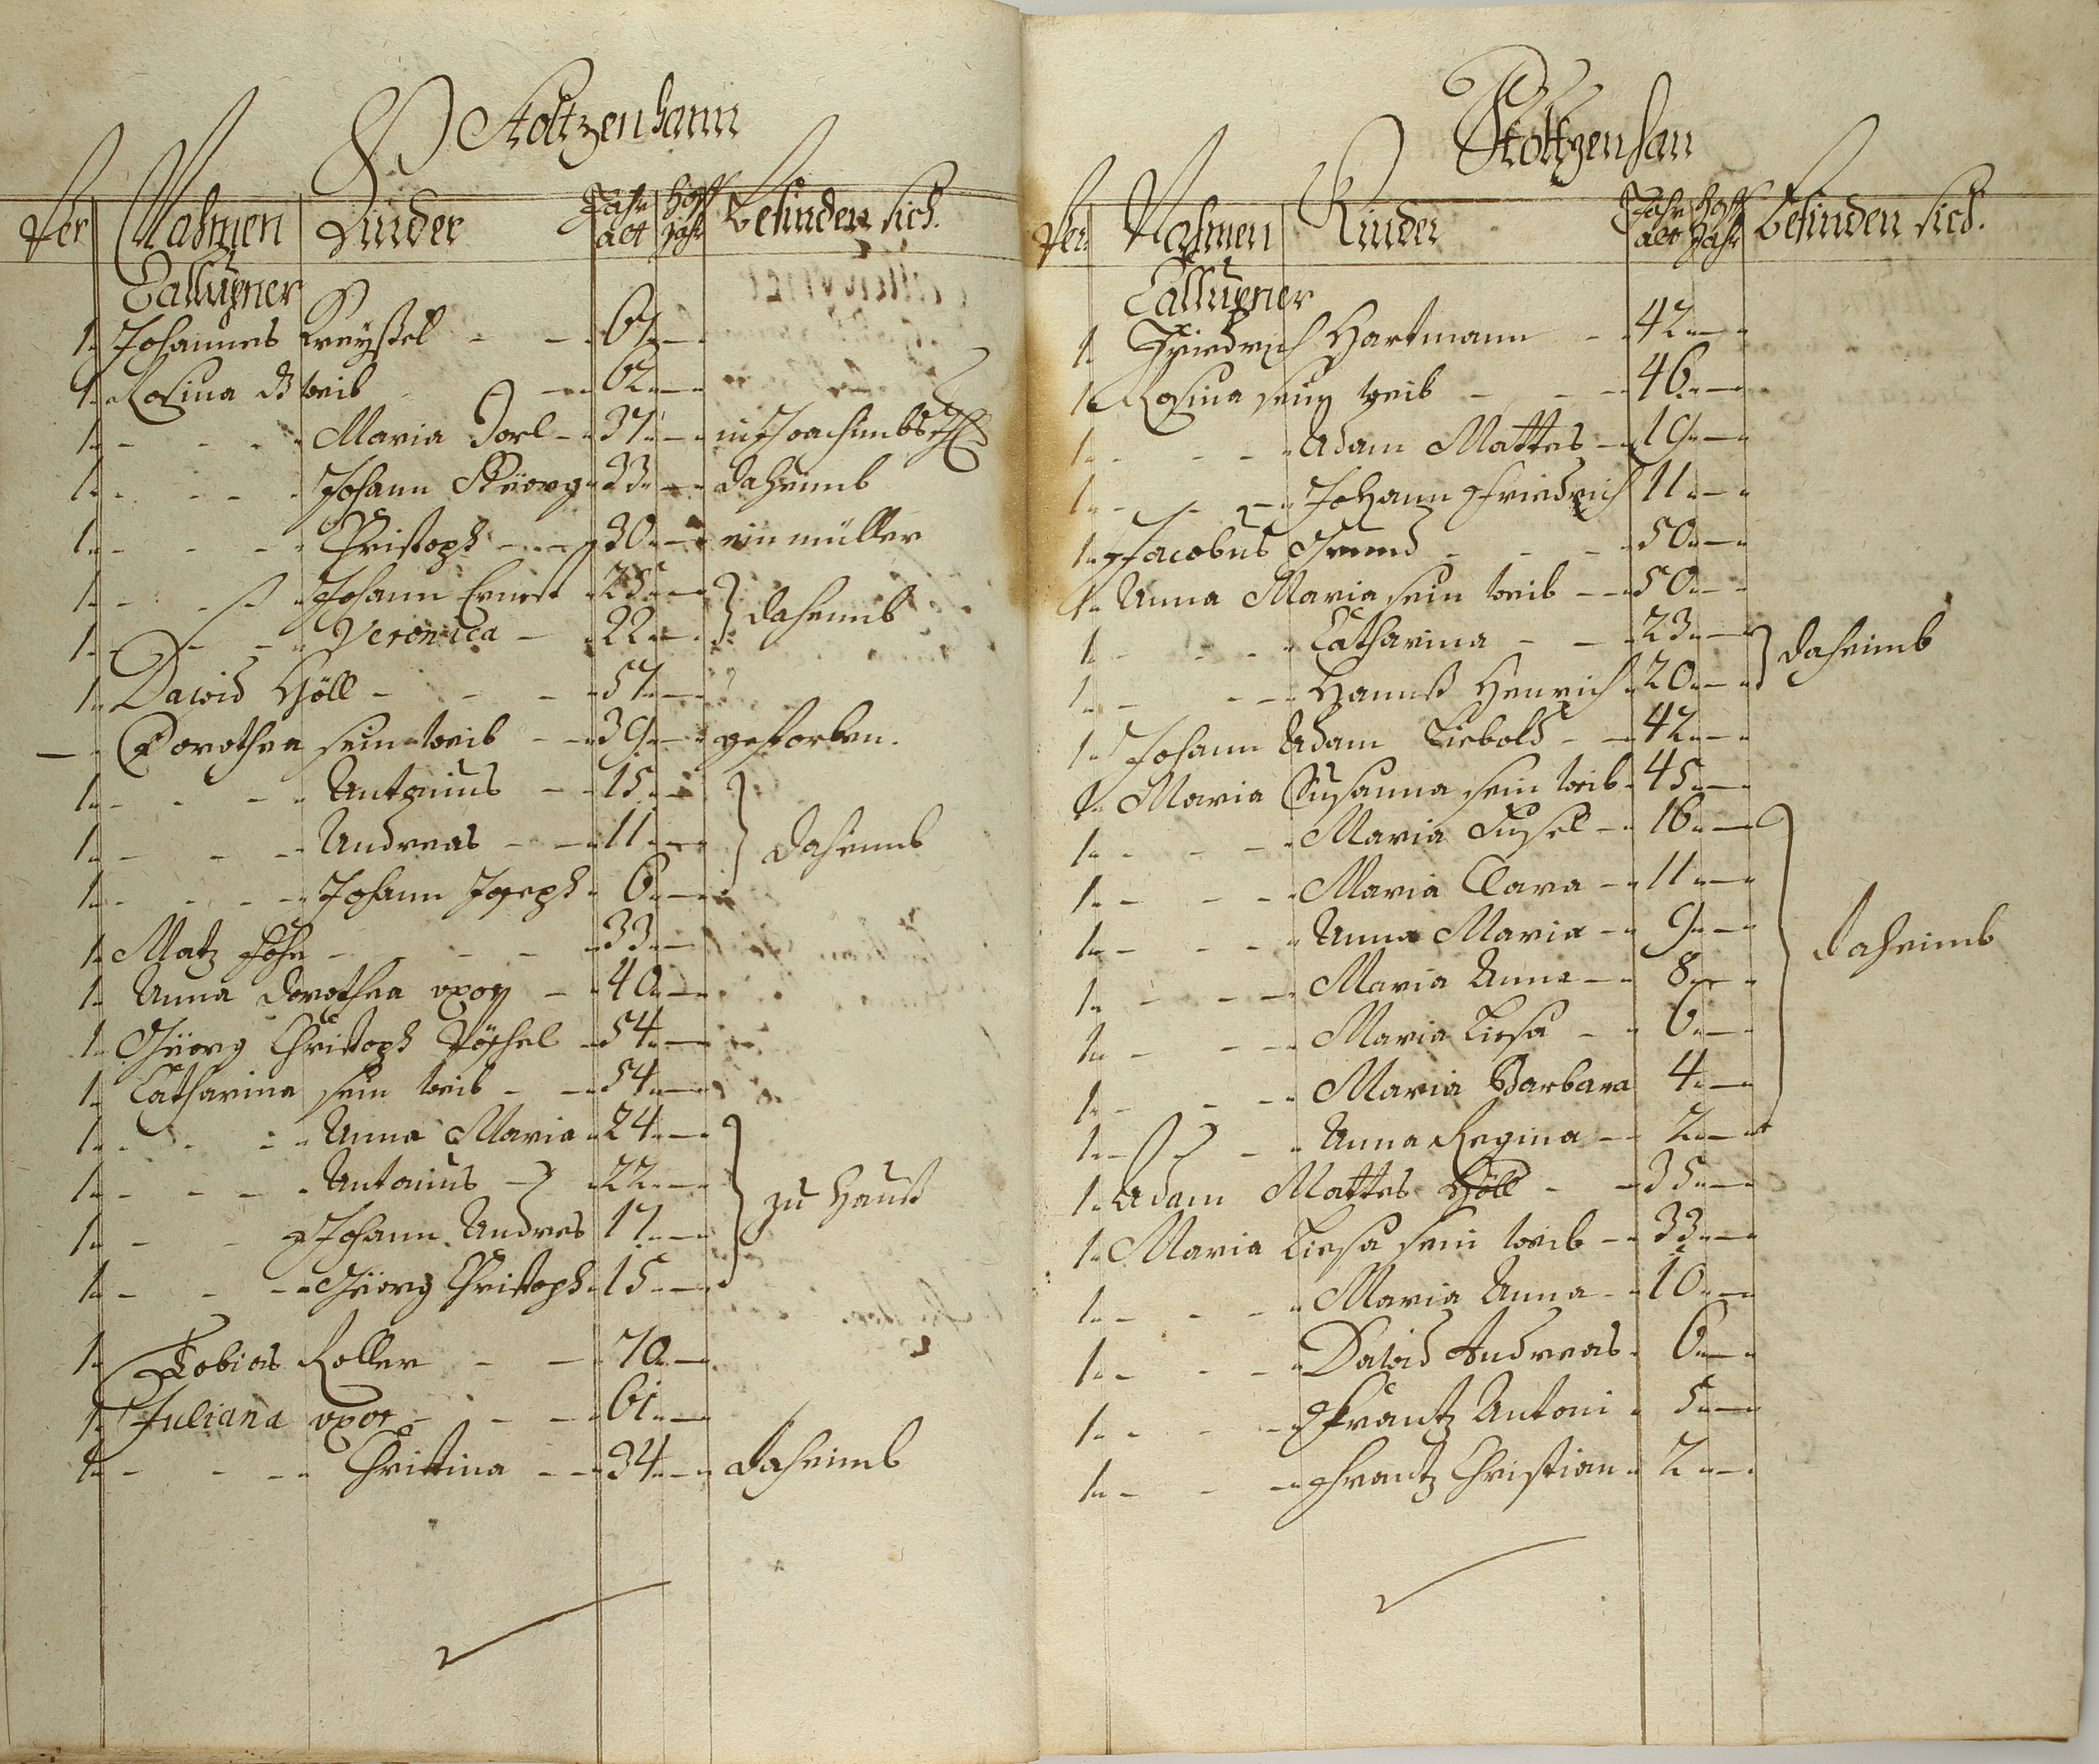 Stoltzenhann
Per Nahmen Kinder Jahr alt Hoff Jahr befinden sich.
Callupner
1. Johannes Kreyssel - - 67.
1. Rosina d weib - - 62.
1. - - - Maria Dorl - 37. - in Joachimbsthl
1. - - - Johann Geörg 33. - daheimb
1. - - - Christoph - 30. - ein müller
1. - - - Johann Ernest 25.
1. - - - Veronica - 22. - daheimb
1. David Höll - - - 57.
- Dorothea sein weib - 39. - gestorben.
1. - - - Antonius - 15.
1. - - - Andreas - 11. - daheimb
1. - - - Johann Joseph 6.
1. Matz - - - 33.
1. Anna Dorothea uxor - 40.
1. Geörg Christoph Pöschel 54.
1. Catharina sein weib - 54.
1. - - - Anna Maria 24.
1. - - - Antonius - 22. - zu Hauß
1. - - Johann Andres 17.
1. - - - Geörg Christoph 15.
1. Tobias Roller - - 70.
1. Juliana uxor - - - 61.
1. - - - Christina - 34. - daheimb
Stoltzenhan
Per Nahmen Kinder Jahr alt Hoff Jahr befinden sich.
Callupner
1. Friedrich Hartmann - 42.
1. Rosina sein weib - - 46.
1. - - - Adam Mattes - 19.
1. - - - Johann Friedrich 11.
1. Jacobus - - - 50.
1. Anna Maria sein weib - 50.
1. - - - Catharina - - 23. - daheimb
1. - - - Hannß Henrich 20.
1. Johann Adam Liebold - 42.
1. Maria Susanna sein weib 45.
1. - - - Maria Susel - 16.
1. - - - Maria Clara - 11.
1. - - - Anna Maria - 9. - daheimb
1. - - - Maria Anna - 8.
1. - - - Maria Liesa - 6.
1. - - - Maria Barbara 4.
1. - - - Anna Regina - 2.
1. Adam Mattes Höll - 35.
1. Maria Liesa sein weib - 33.
1. - - - Maria Anna - 10.
1. - - - David Andreas 6.
1. - - - Frantz Antoni 5.
1. - - - Frantz Christian 2.